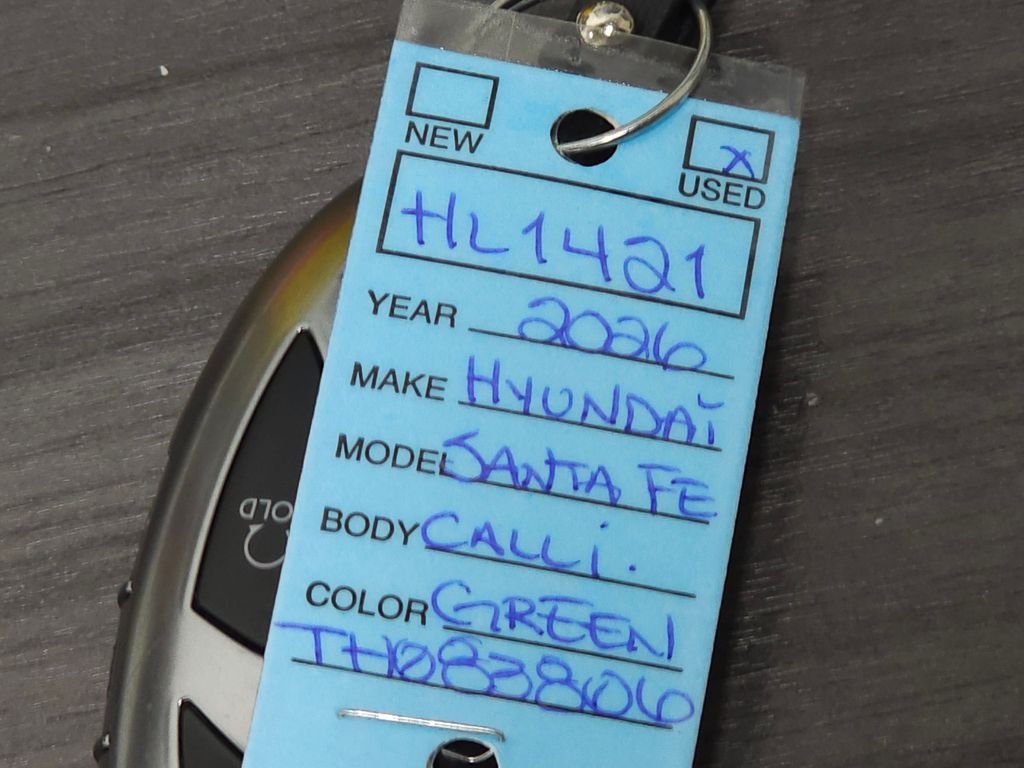 NEW
X
USED
HL1421
YEAR 2026
MAKE HYUNDAI
MODEL SANTA FE
BODY CALLI.
COLOR GREEN
TH083806
HOLD